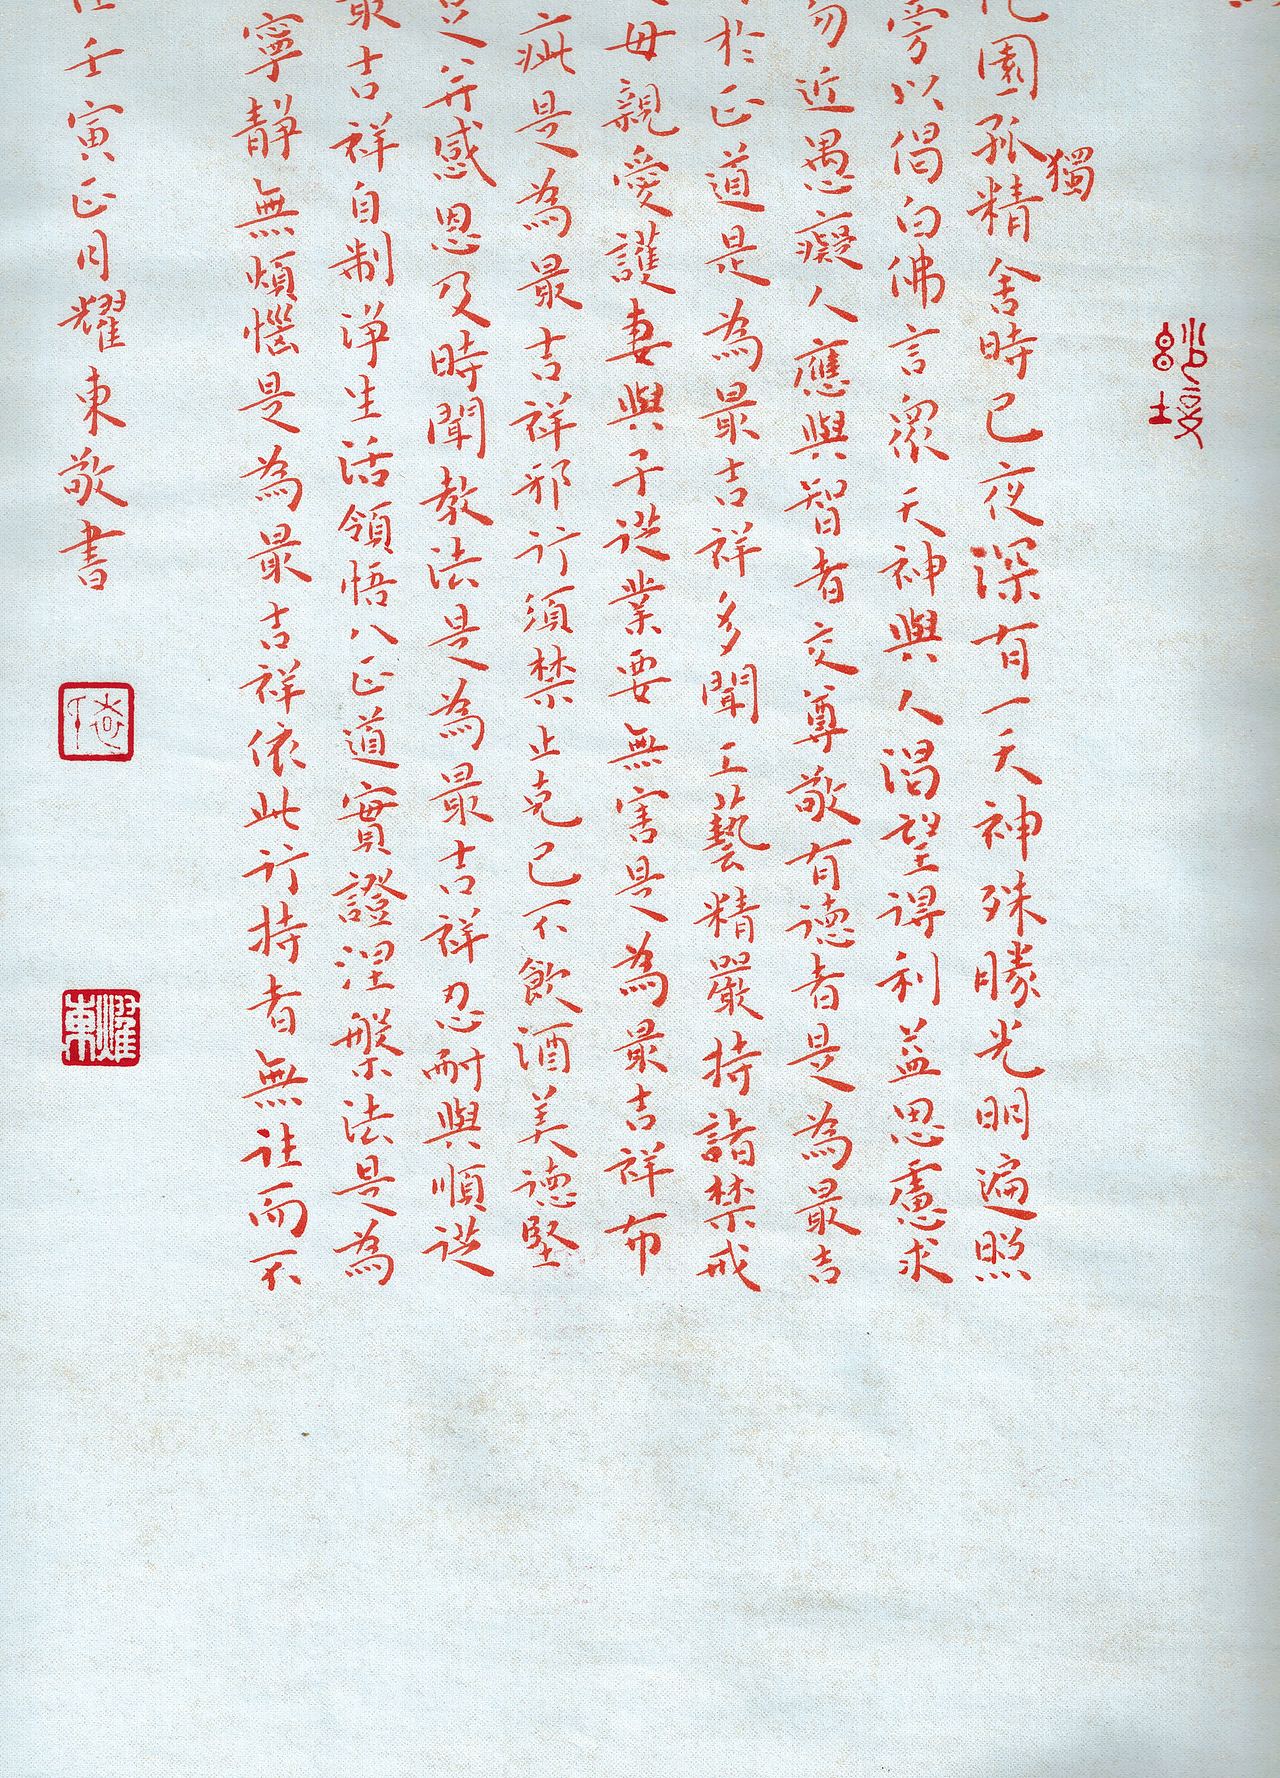 園孤精舍時已夜深有一天神殊勝光明遍照
獨
旁以偈白佛言眾天神與人渴望得利益思慮求
勿近愚癡人應與智者交尊敬有德者是為最吉
於正道是為最吉祥多聞工藝精嚴持諸禁戒
母親愛護妻與子從業要無害是為最吉祥布
疵是為最吉祥邪行須禁止克己不飲酒美德堅
足并感恩及時聞教法是為最吉祥忍耐與順從
最吉祥自制淨生活領悟八正道實證涅槃法是為
寧靜無煩惱是為最吉祥依此行持者無往而不
壬寅正月耀東敬書
耀東